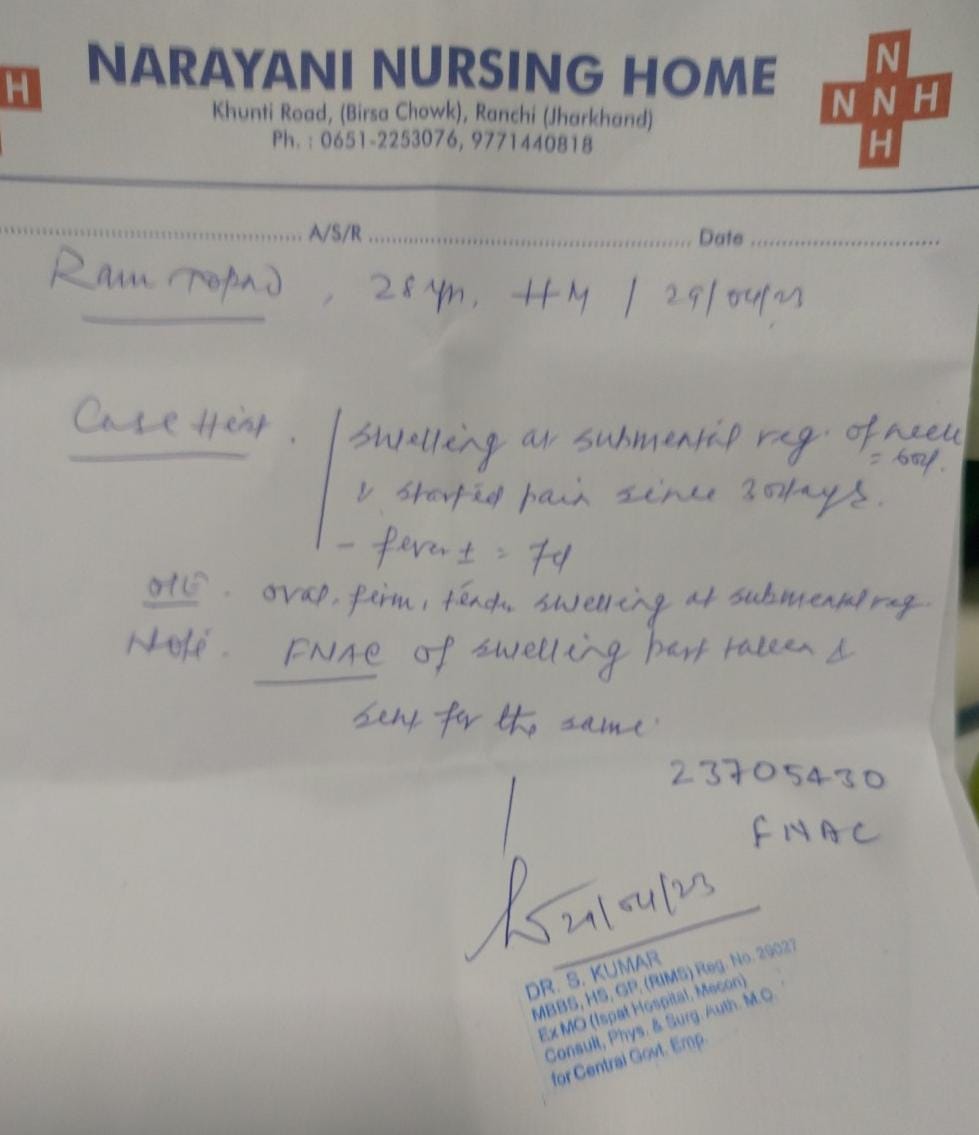 H
NARAYANI NURSING HOME
Khunti Road, (Birsa Chowk), Ranchi (Jharkhand)
Ph. : 0651-2253076, 9771440818
N
N N H
H
A/S/R Date
Ram Topno, 28 yrs, HM / 29/04/23
Case Hist. swelling at submental reg. of neck
= 60d.
& started pain since 3 days.
- fever ± = 7d
O/E. oval, firm, tender swelling at submental reg.
Note. FNAC of swelling part taken &
sent for the same.
23705430
FNAC
29/04/23
DR. S. KUMAR
MBBS, HS, GP, (RIMS) Reg. No. 29027
Ex MO (Ispat Hospital, Mecon)
Consult, Phys. & Surg. Auth. M.O.
for Central Govt. Emp.